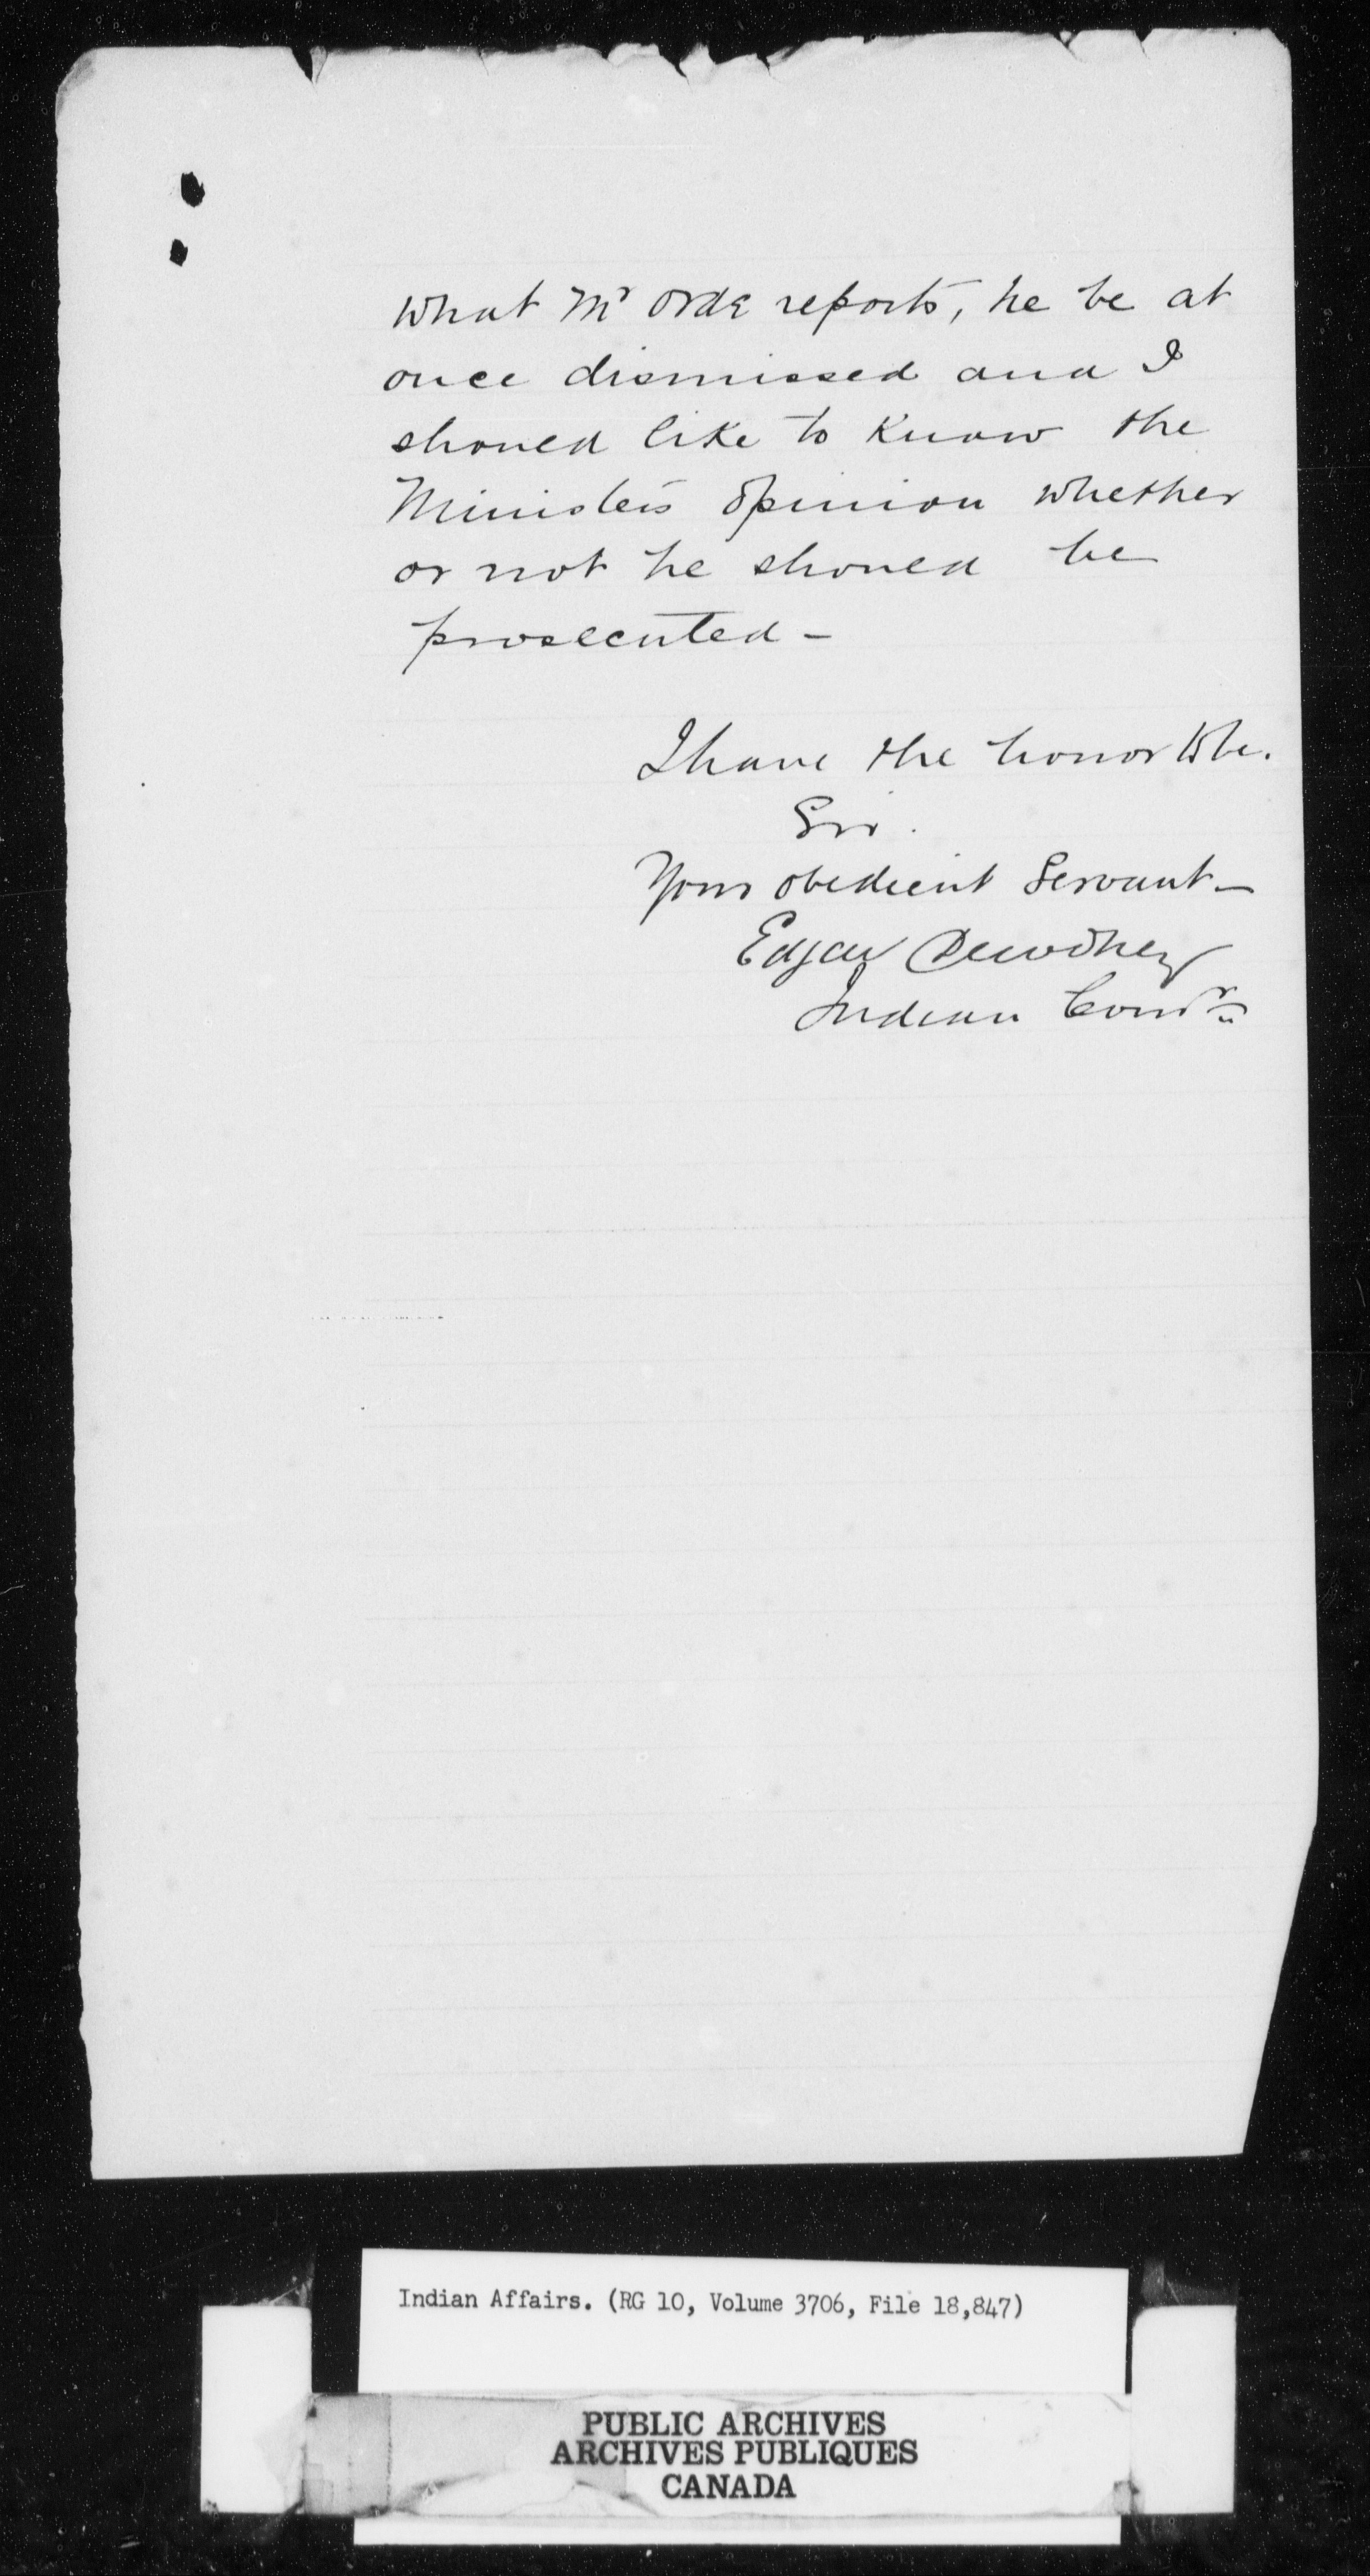 what Mr Orde reports, he be at
once dismissed and I
should like to know the
Ministers opinion whether
or not he should be
prosecuted -
I have the honor to be.
Sir.
Your obedient Servant -
Edgar Dewdney
Indian Comr
Indian Affairs. (RG 10, Volume 3706, File 18,847)
PUBLIC ARCHIVES
ARCHIVES PUBLIQUES
CANADA